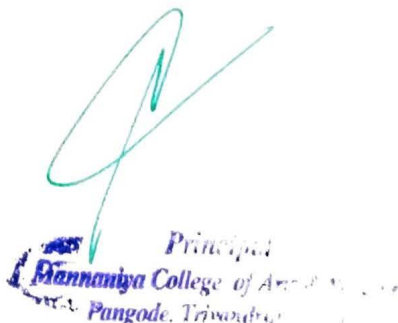 Principal
Mannaniya College of
Pangode, Trivandrum